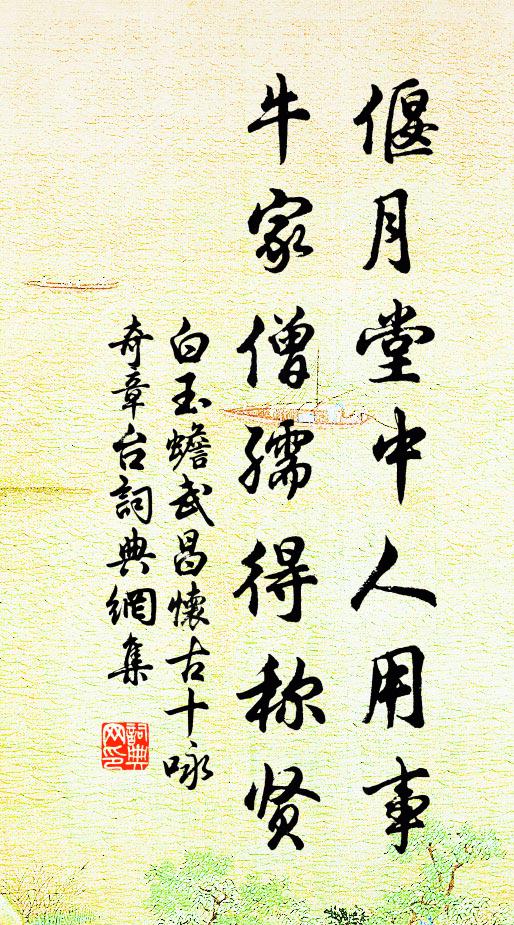 偃月堂中人用事
牛家僧孺得称贤
白玉蟾武昌懷古十咏
奇章台詞典網集
詞典网印